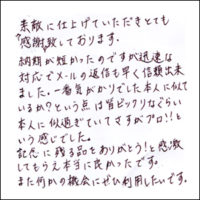 素敵に仕上げていただきとても
感謝致しております。
納期が短かったのですが迅速な
対応でメールの返信も早く信頼出来
ました。一番気がかりでした本人に似て
いるか?という点は皆ビックリするくらい
本人に似過ぎていてさすがプロ!!と
いう感じでした。
記念に残る品をありがとう!と感激
してもらえ本当に良かったです。
また何かの機会にぜひ利用したいです。